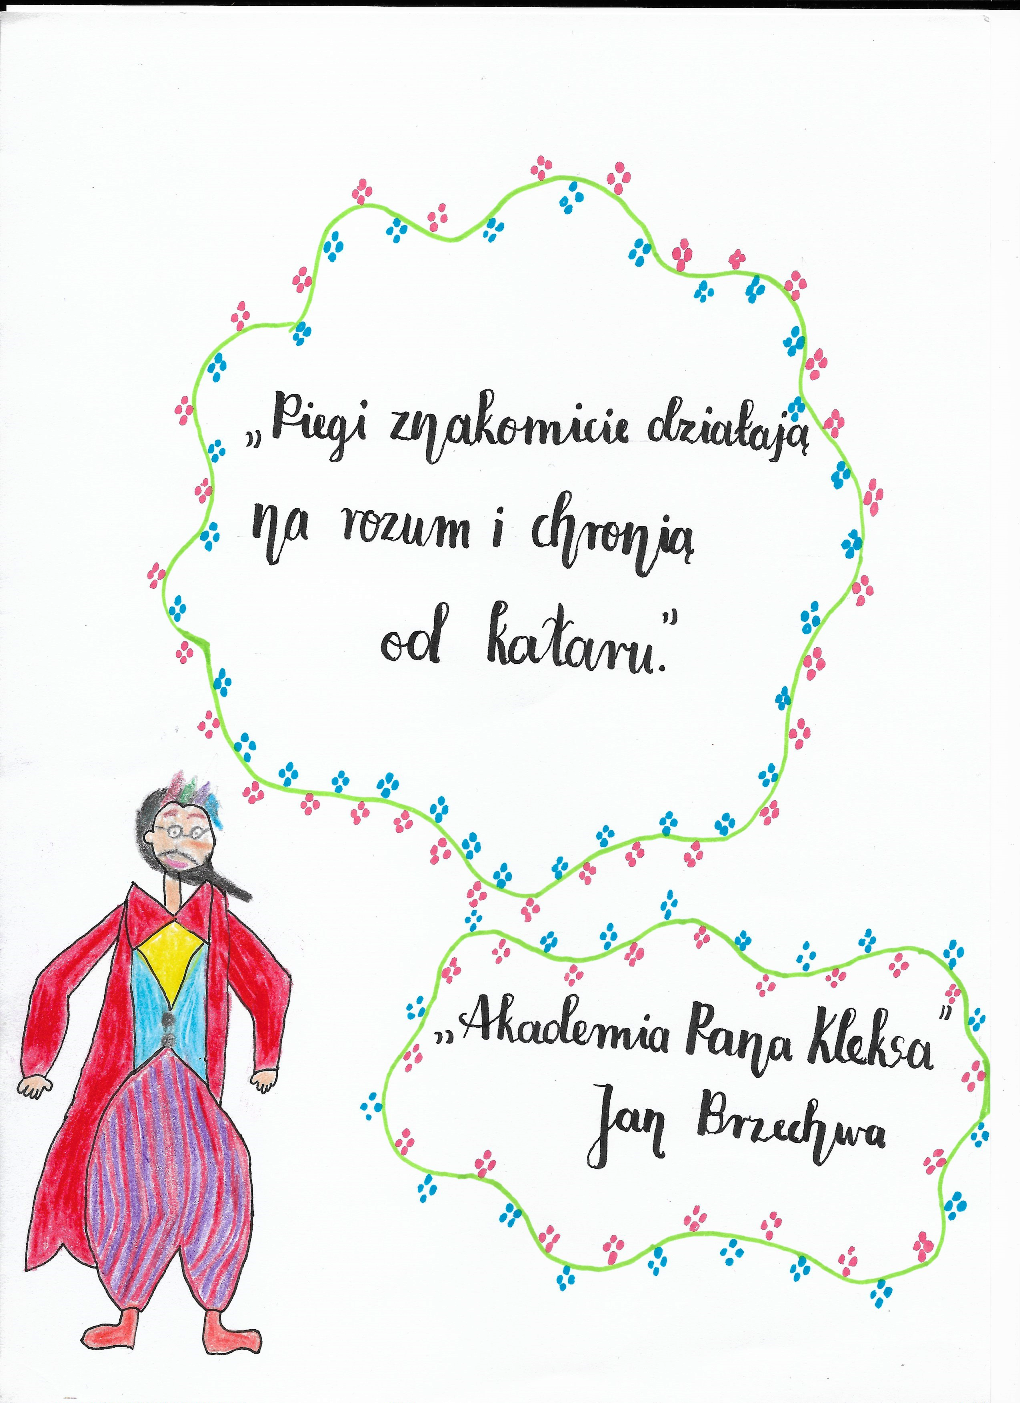 „Piegi znakomicie działają
na rozum i chronią
od kataru."
„Akademia Pana Kleksa"
Jan Brzechwa